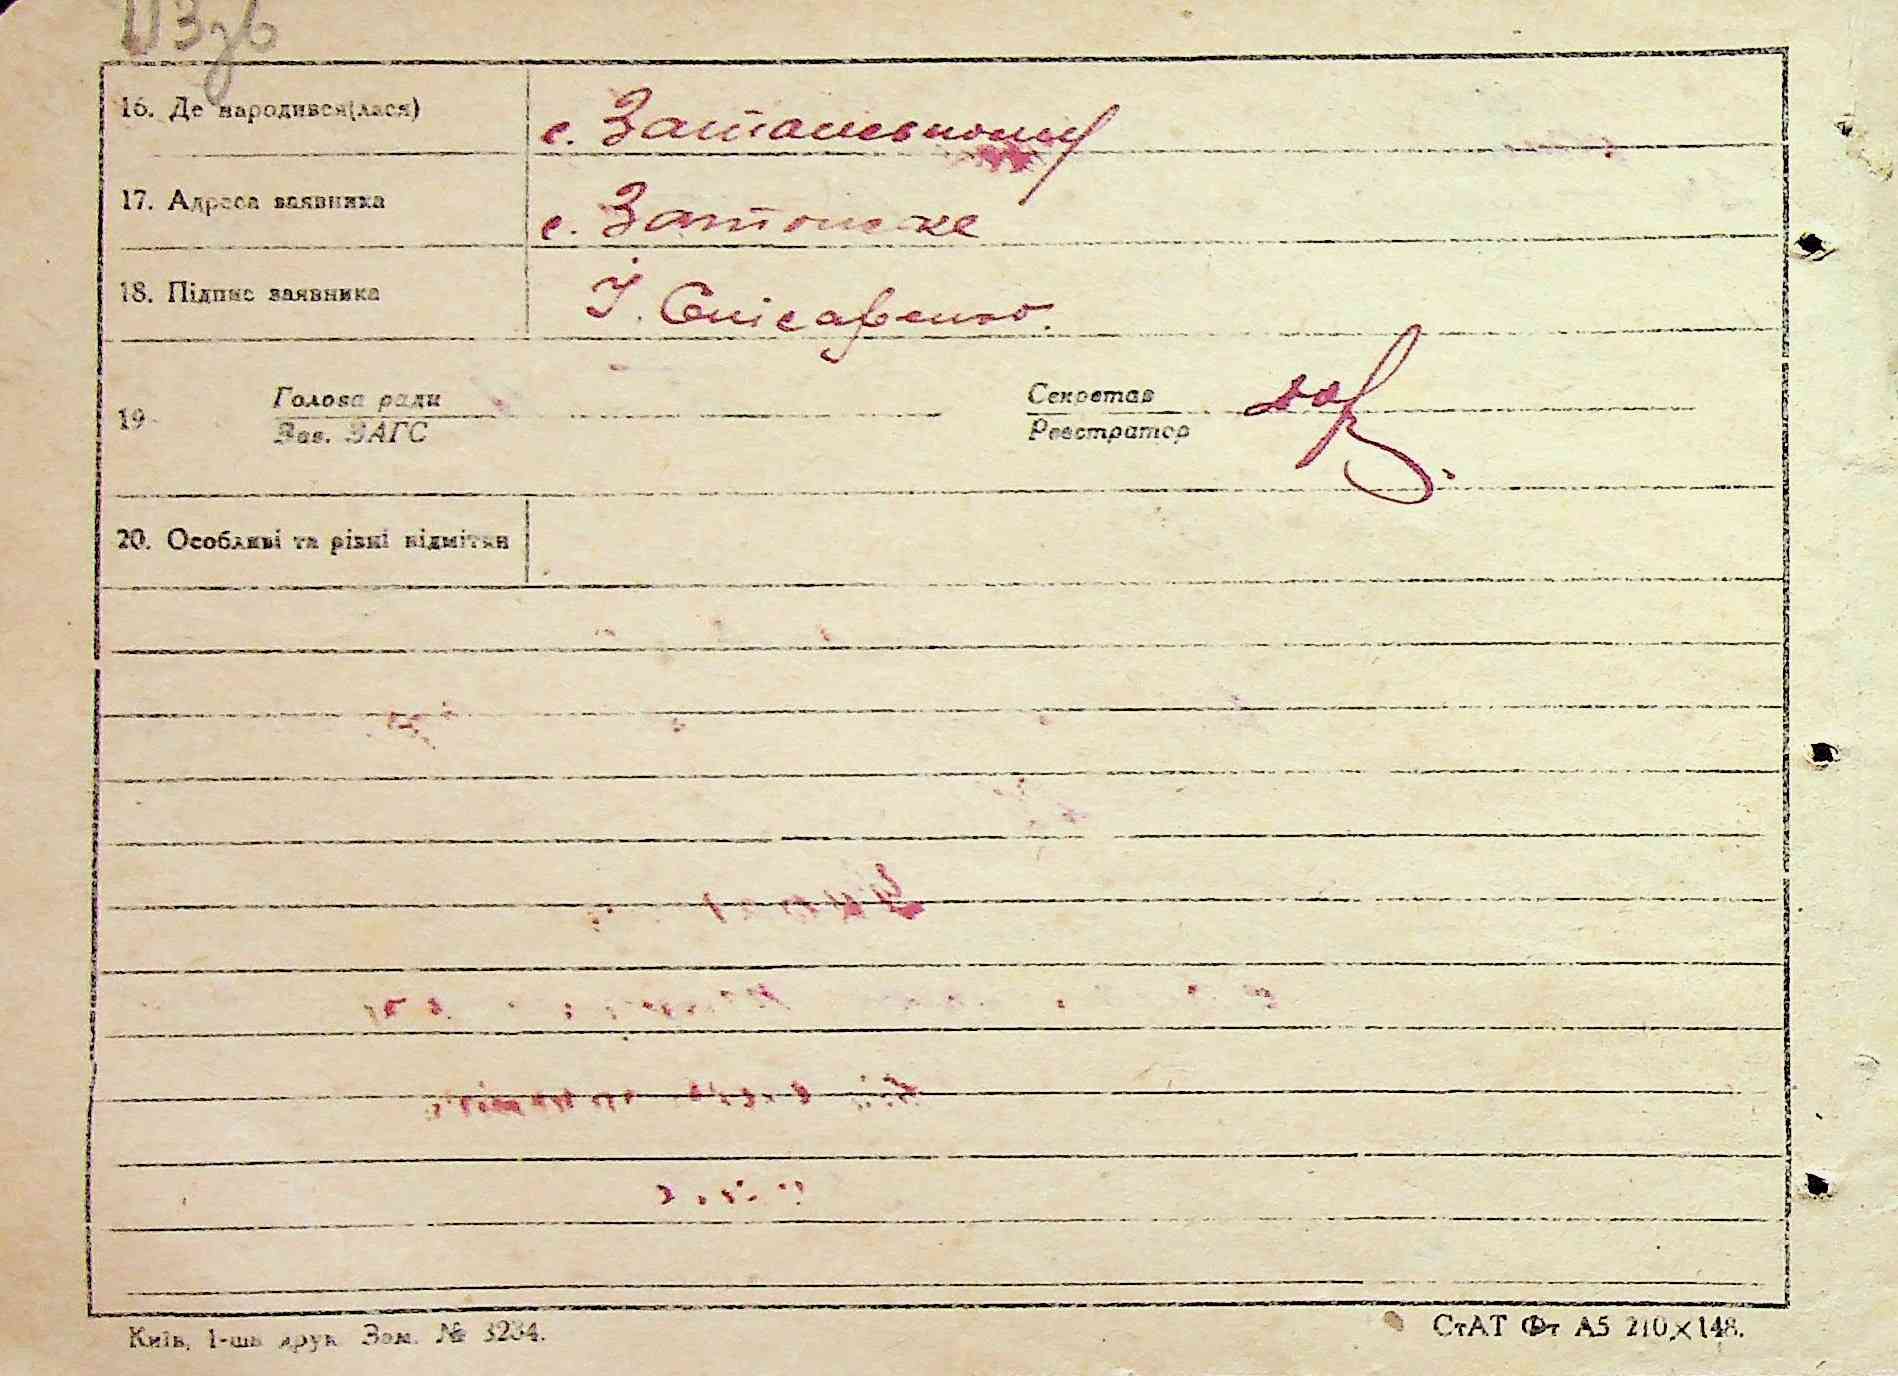 16. Де народився(лася)
17. Адреса заявника
с. Затонське
18. Підпис заявника
І. Єлісавенко.
19 Голова ради Секретар
Зав. ЗАГС Реєстратор
20. Особливі та різні відмітки
Київ, 1-ша друк Зам. № 3234.
СтАТ Фт А5 210×148.